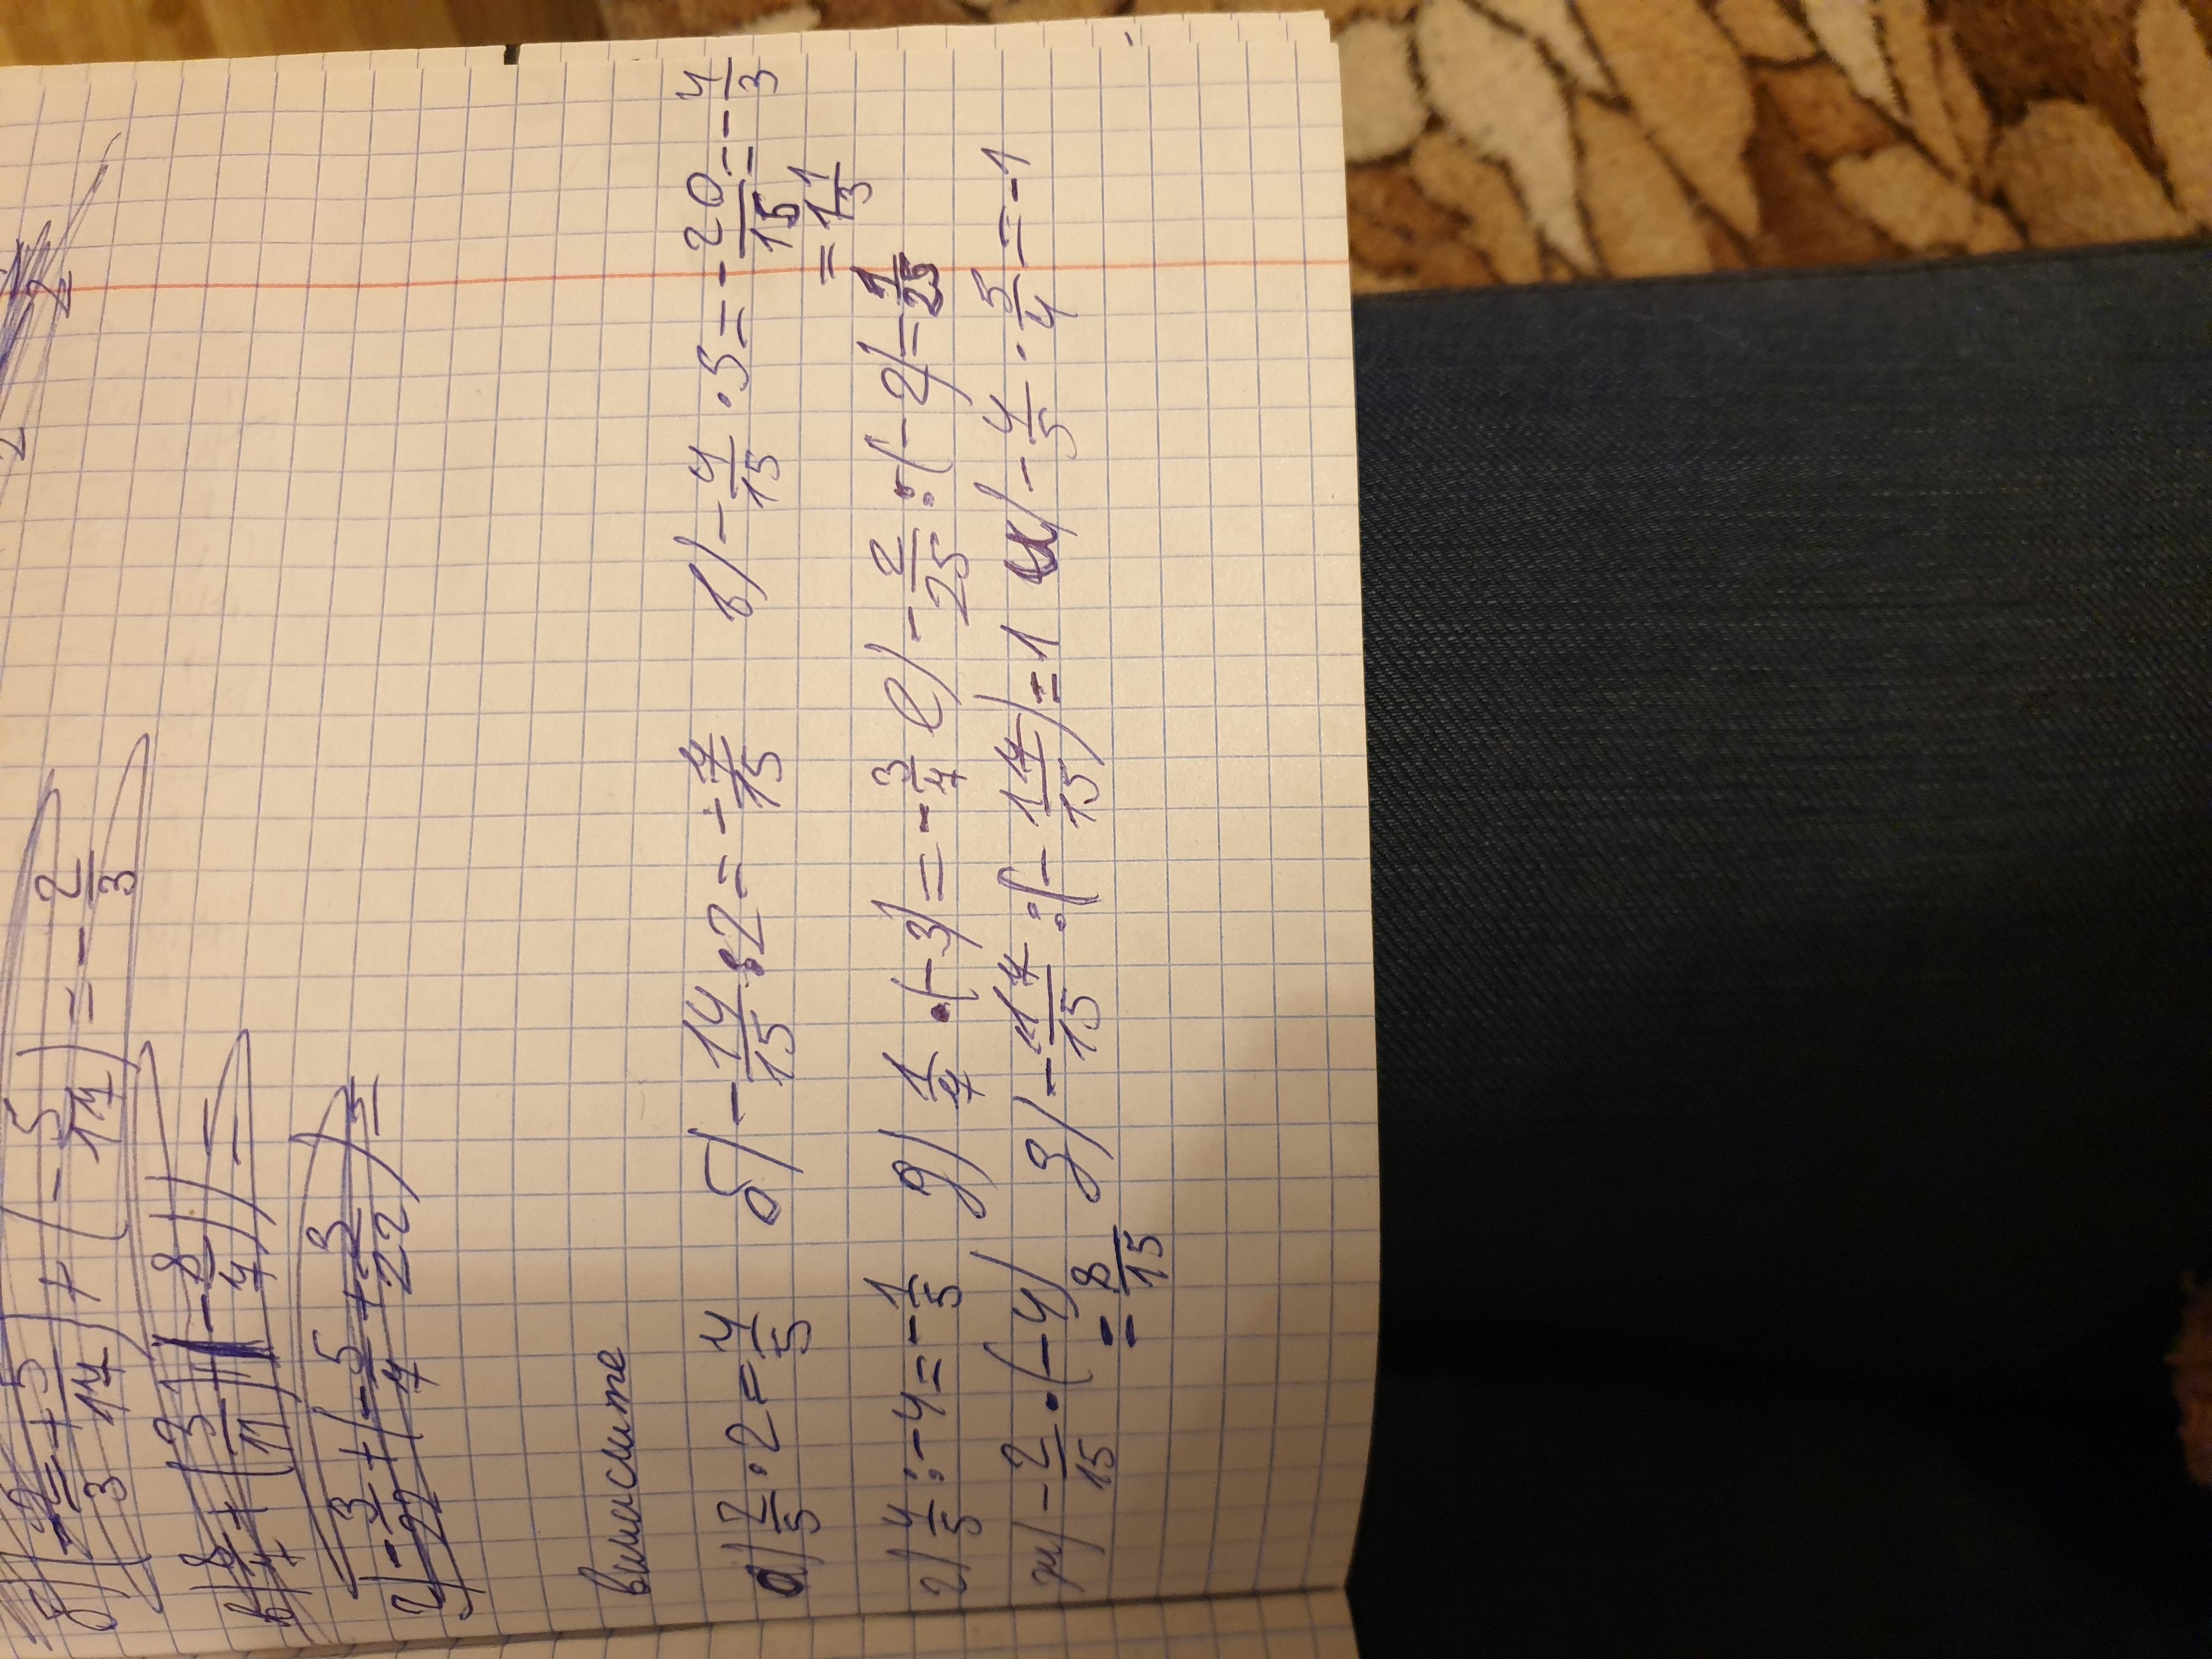 б) -2/3 + 5/17 + (-5/17) = -2/3
в) 8/7 + (3/11) + (-8/7) =
г) -3/22 + (-5/7 + 3/22) =
вычислите
а) 2/5 · 2 = 4/5 б) -14/15 : 2 = -7/15 в) -4/15 · 5 = -20/15 = -4/3
= 1 1/3
г) 4/5 : -4 = -1/5 д) 1/7 · (-3) = -3/7 е) -2/25 : (-2) = 1/25
ж) -2/15 · (-4) з) -17/15 : (-17/15) = 1 и) -4/5 · 5/4 = -1
= 8/15